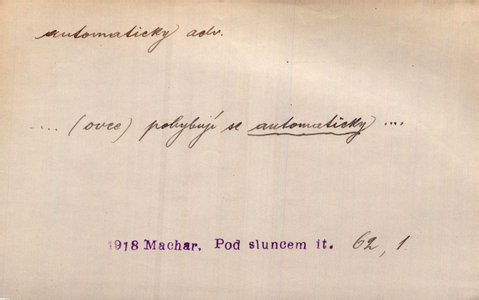 automaticky adv.
.... (ovce) pohybují se automaticky ....
1918 Machar, Pod sluncem it. 62, 1